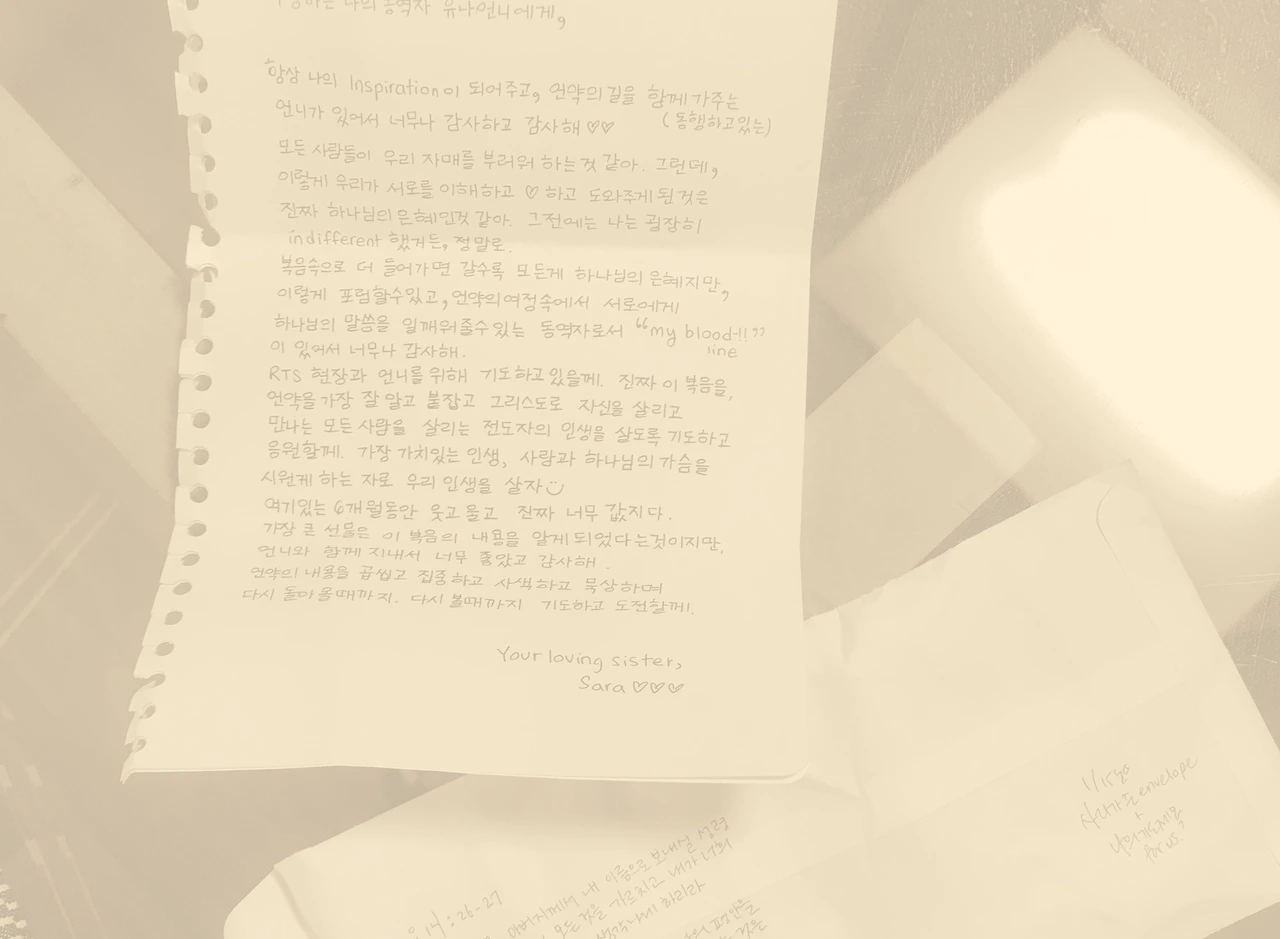 나의 동역자 유나언니에게,
항상 나의 Inspiration이 되어주고, 언약의 길을 함께 가주는
(동행하고있는)
언니가 있어서 너무나 감사하고 감사해 ♡♡
모든 사람들이 우리 자매를 부러워 하는것 같아. 그런데,
이렇게 우리가 서로를 이해하고 ♡ 하고 도와주게 된것은
진짜 하나님의 은혜인것 같아. 그전에는 나는 굉장히
indifferent 했거든, 정말로.
복음속으로 더 들어가면 갈수록 모든게 하나님의 은혜지만,
이렇게 포럼할수있고, 언약의여정속에서 서로에게
하나님의 말씀을 일깨워줄수 있는 동역자로서 "my blood-!!"
line
이 있어서 너무나 감사해.
RTS 현장과 언니를 위해 기도하고있을께. 진짜 이 복음을,
언약을 가장 잘 알고 붙잡고 그리스도로 자신을 살리고
만나는 모든 사람을 살리는 전도자의 인생을 살도록 기도하고
응원할께. 가장 가치있는 인생, 사람과 하나님의 가슴을
시원케 하는 자로 우리 인생을 살자☺
여기있는 6개월동안 웃고 울고 진짜 너무 값지다.
가장 큰 선물은 이 복음의 내용을 알게 되었다는것이지만,
언니와 함께 지내서 너무 좋았고 감사해.
언약의 내용을 곱씹고 집중하고 사색하고 묵상하며
다시 돌아올때까지. 다시 볼때까지 기도하고 도전할께!.
Your loving sister,
Sara ♡♡♡
envelope
+
for us.
14:26-27
아버지께서 내 이름으로 보내실 성령
모든 것을 가르치고 내가 너희
생각나게 하리라
평안을
것은